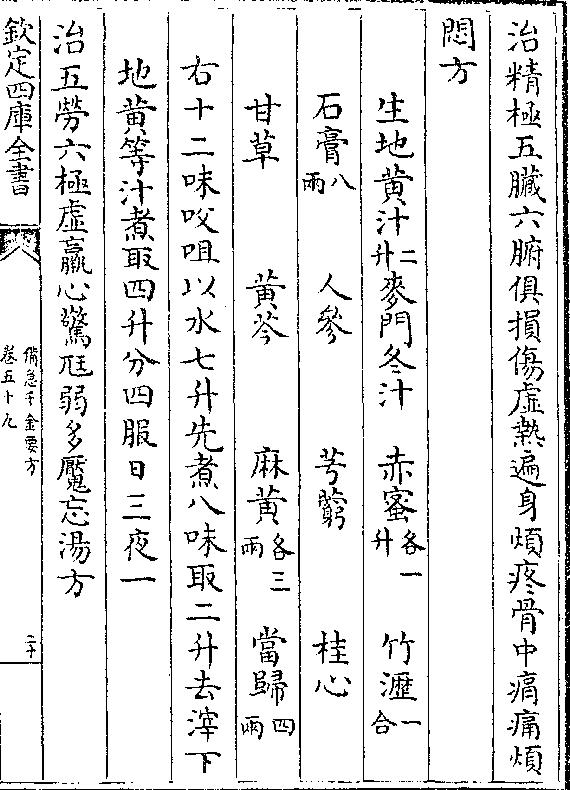 治精極五臟六腑俱損傷虛熱遍身煩疼骨中痟痛煩
悶方
生地黄汁二升麥門冬汁 赤蜜各一升 竹瀝一合
石膏八兩 人參 芎藭 桂心
甘草 黄芩 麻黄各三兩 當歸四兩
右十二味㕮咀以水七升先煮八味取二升去滓下
地黄等汁煮取四升分四服日三夜一
治五勞六極虛羸心驚尫弱多魘忘湯方
欽定四庫全書
備急千金要方
卷五十九
二十